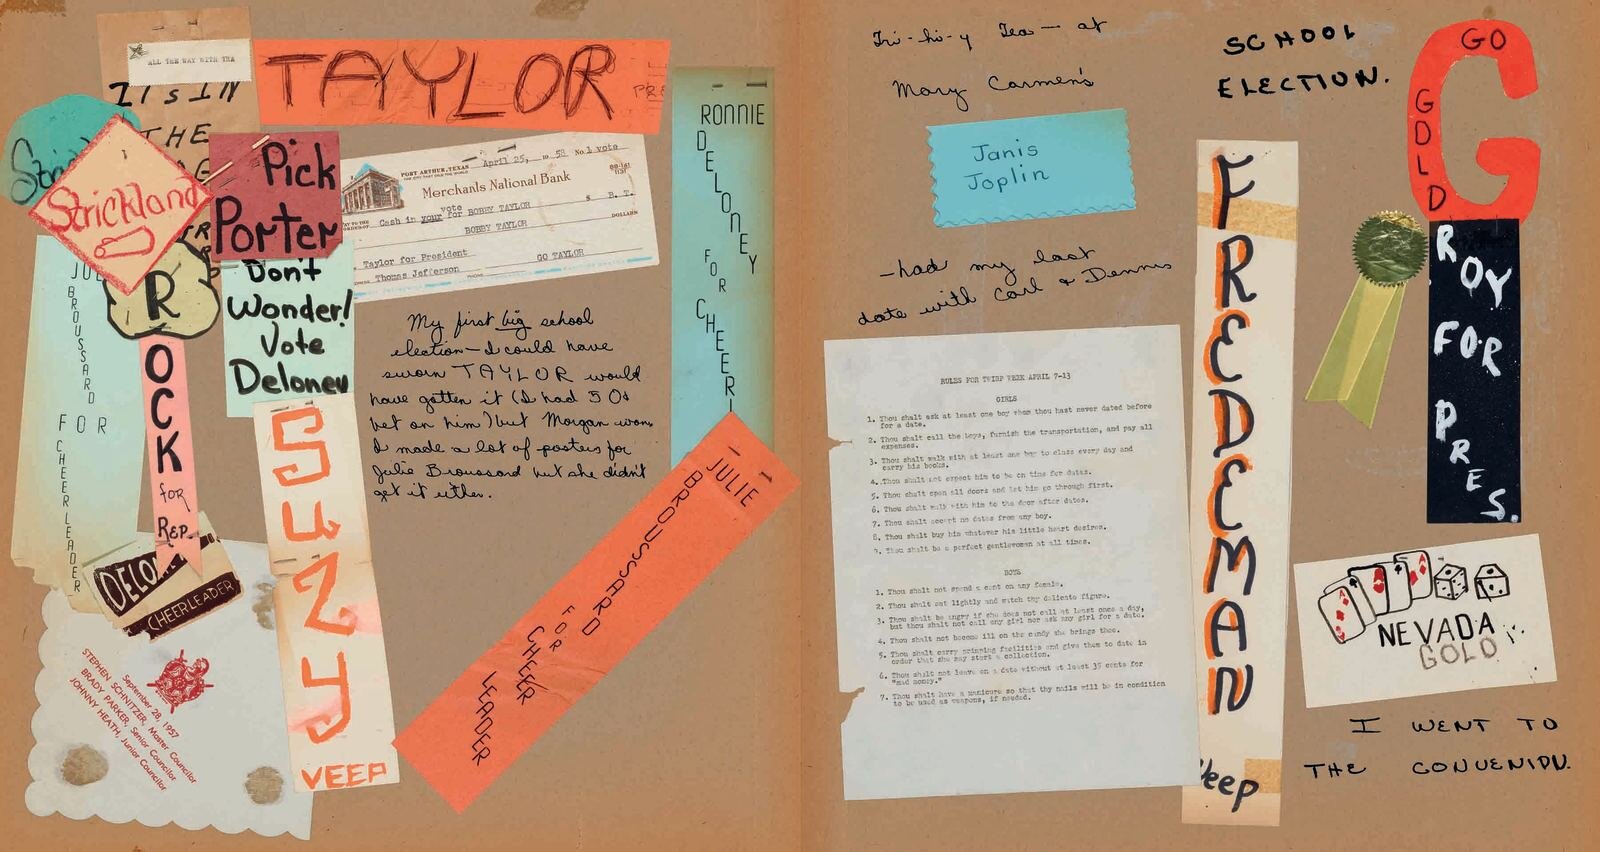 ALL THE WAY WITH TRA
IT'S IN
THE
TAYLOR
PRE
Strickland
Pick
Porter
PORT ARTHUR, TEXAS
April 25, 19 58 No. 1 vote
88-161
1131
Merchants National Bank
vote
Cash in your for BOBBY TAYLOR $ B. T.
BOBBY TAYLOR DOLLARS
Taylor for President
GO TAYLOR
Thomas Jefferson
PHONE
RONNIE
DELONEY
FOR
CHEER
JUL
BROUSSARD
FOR
CHEERLEADER
ROCK
for
REP.
Don't
Wonder!
Vote
Deloney
SUZY
VEEP
My first big school
election—I could have
sworn TAYLOR would
have gotten it (I had 50¢
bet on him) but Morgan won.
I made a lot of posters for
Julie Broussard but she didn't
get it either.
JULIE
BROUSSARD
FOR
CHEER
LEADER
DELO
CHEERLEADER
September 28, 1957
STEPHEN SCHNITZER, Master Councilor
BRADY PARKER, Senior Councilor
JOHNNY HEATH, Junior Councilor
Tri-hi-y Tea — at
Mary Carmen's
Janis
Joplin
—had my last
date with Carl & Dennis
RULES FOR TWIRP WEEK APRIL 7-13
GIRLS
1. Thou shalt ask at least one boy whom thou hast never dated before
for a date.
2. Thou shalt call the boys, furnish the transportation, and pay all
expenses.
3. Thou shalt walk with at least one boy to class every day and
carry his books.
4. Thou shalt not expect him to be on time for dates.
5. Thou shalt open all doors and let him go through first.
6. Thou shalt walk with him to the door after dates.
7. Thou shalt accept no dates from any boy.
8. Thou shalt buy him whatever his little heart desires.
9. Thou shalt be a perfect gentlewoman at all times.
BOYS
1. Thou shalt not spend a cent on any female.
2. Thou shalt eat lightly and watch thy delicate figure.
3. Thou shalt be angry if she does not call at least once a day,
but thou shalt not call any girl nor ask any girl for a date.
4. Thou shalt not become ill on the candy she brings thee.
5. Thou shalt carry primping facilities and give them to date in
order that she may start a collection.
6. Thou shalt not leave on a date without at least 35 cents for
"mad money."
7. Thou shalt have a manicure so that thy nails will be in condition
to be used as weapons, if needed.
SCHOOL
ELECTION.
FREDEMAN
Veep
G
GO
GOLD
ROY
FOR
PRES.
NEVADA
GOLD
I WENT TO
THE CONVENION.